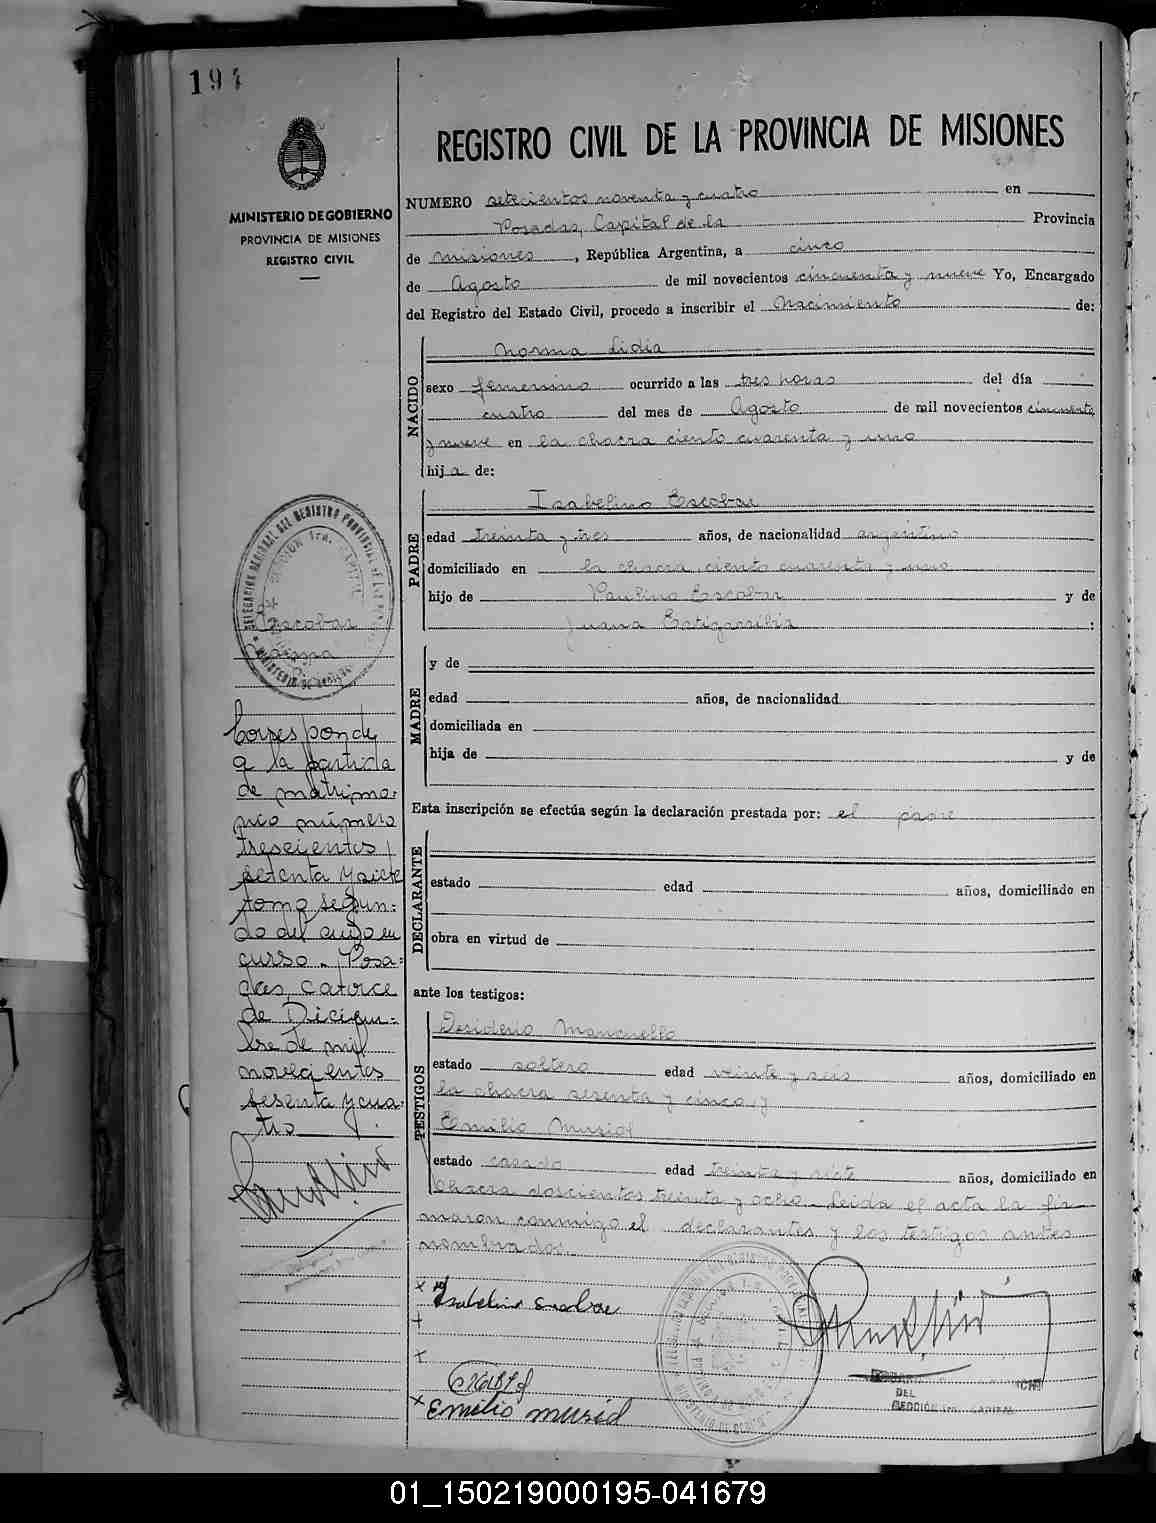 194
MINISTERIO DE GOBIERNO
PROVINCIA DE MISIONES
REGISTRO CIVIL
REGISTRO CIVIL DE LA PROVINCIA DE MISIONES
NUMERO setecientos noventa y cuatro en
Posadas, Capital de la Provincia
de misiones, República Argentina, a cinco
de Agosto de mil novecientos cincuenta y nueve Yo, Encargado
del Registro del Estado Civil, procedo a inscribir el Nacimiento de:
NACIDO
Norma Lidia
sexo femenino ocurrido a las tres horas del día
cuatro del mes de Agosto de mil novecientos cincuenta
y nueve en la chacra ciento cuarenta y uno
hija de:
PADRE
Isabelino Escobar
edad treinta y tres años, de nacionalidad argentino
domiciliado en la chacra ciento cuarenta y uno
hijo de Paulino Escobar y de
Juana :
MADRE
y de
edad años, de nacionalidad
domiciliada en
hija de y de
Esta inscripción se efectúa según la declaración prestada por: el padre
DECLARANTE
estado edad años, domiciliado en
obra en virtud de
ante los testigos:
TESTIGOS
Desiderio Mancuello
estado soltero edad veinte y seis años, domiciliado en
la chacra sesenta y cinco, y
Emilio Musiol
estado casado edad treinta y siete años, domiciliado en
Chacra doscientos treinta y ocho. Leida el acta la fir
maron conmigo el declarantes y los testigos antes
nombrados.
Escobar
Norma
Corresponde
a la partida
de matrimo-
nio número
trescientos
setenta y siete
tomo segun-
do del año en
curso. Posa-
das, catorce
de Diciem-
bre de mil
novecientos
sesenta y cua-
tro
Isabelino Escobar
Emilio Musiol
DEL
SECCIÓN 1ra. CAPITAL
01_150219000195-041679